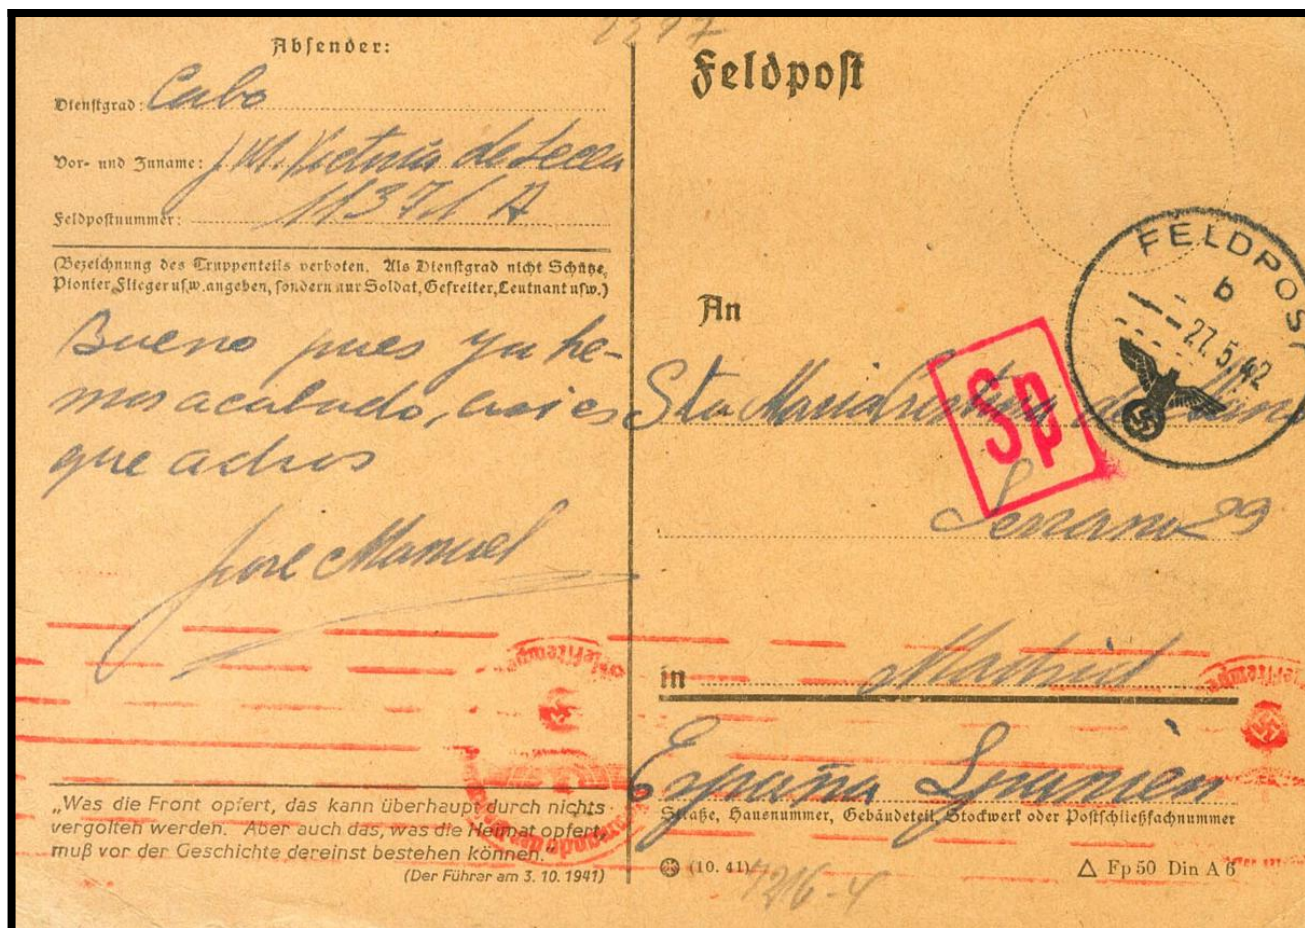 Absender:
Dienstgrad: Cabo
Vor- und Zuname: J M. Victoria de Lecea
Feldpostnummer: 11371 A
(Bezeichnung des Truppenteils verboten. Als Dienstgrad nicht Schütze,
Pionier, Flieger usw. angeben, sondern nur Soldat, Gefreiter, Leutnant usw.)
Bueno pues ya he-
mos acabado, asi es
que adios
José Manuel
„Was die Front opfert, das kann überhaupt durch nichts
vergolten werden. Aber auch das, was die Heimat opfert,
muß vor der Geschichte dereinst bestehen können."
(Der Führer am 3. 10. 1941)
Feldpost
FELDPOST
b
27.5.42
An
Sp
Sta Maria Cristina de
Serrano 29
in Madrid
España Spanien
Straße, Hausnummer, Gebäudeteil, Stockwerk oder Postschließfachnummer
(10. 41)
△ Fp 50 Din A 6
7216-4